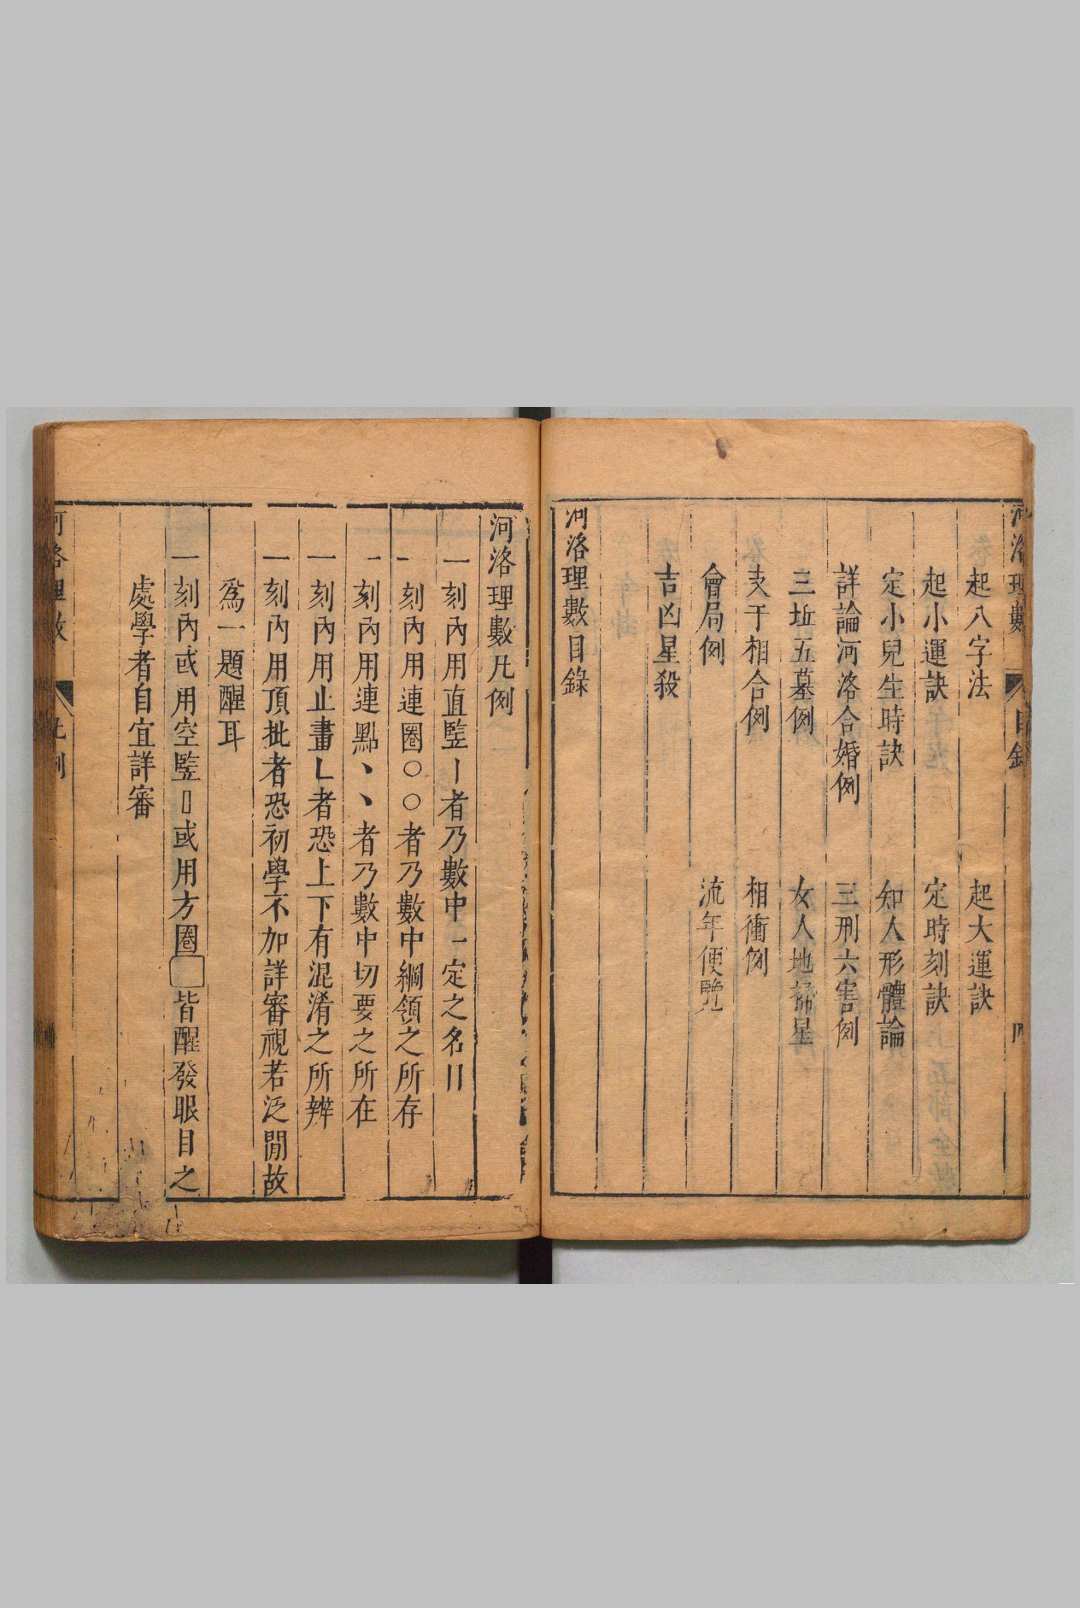 河洛理數
目錄
四
起八字法
起大運訣
起小運訣
定時刻訣
定小兒生時訣
知人形體論
詳論河洛合婚例
三刑六害例
三坵五墓例
女人地掃星
支干相合例
相衝例
會局例
流年便覽
吉凶星殺
河洛理數目錄
河洛理數凡例
一刻內用直竪丨者乃數中一定之名目
一刻內用連圈○○者乃數中綱領之所存
一刻內用連點丶丶者乃數中切要之所在
一刻內用止畫乚者恐上下有混淆之所辨
一刻內用頂批者恐初學不加詳審視若泛閒故
爲一題醒耳
一刻內或用空竪▯或用方圈□皆醒發眼目之
處學者自宜詳審
河洛理數
凡例